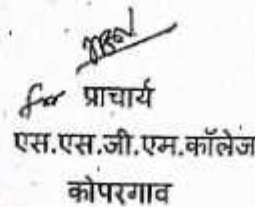 for प्राचार्य
एस.एस.जी.एम.कॉलेज
कोपरगाव